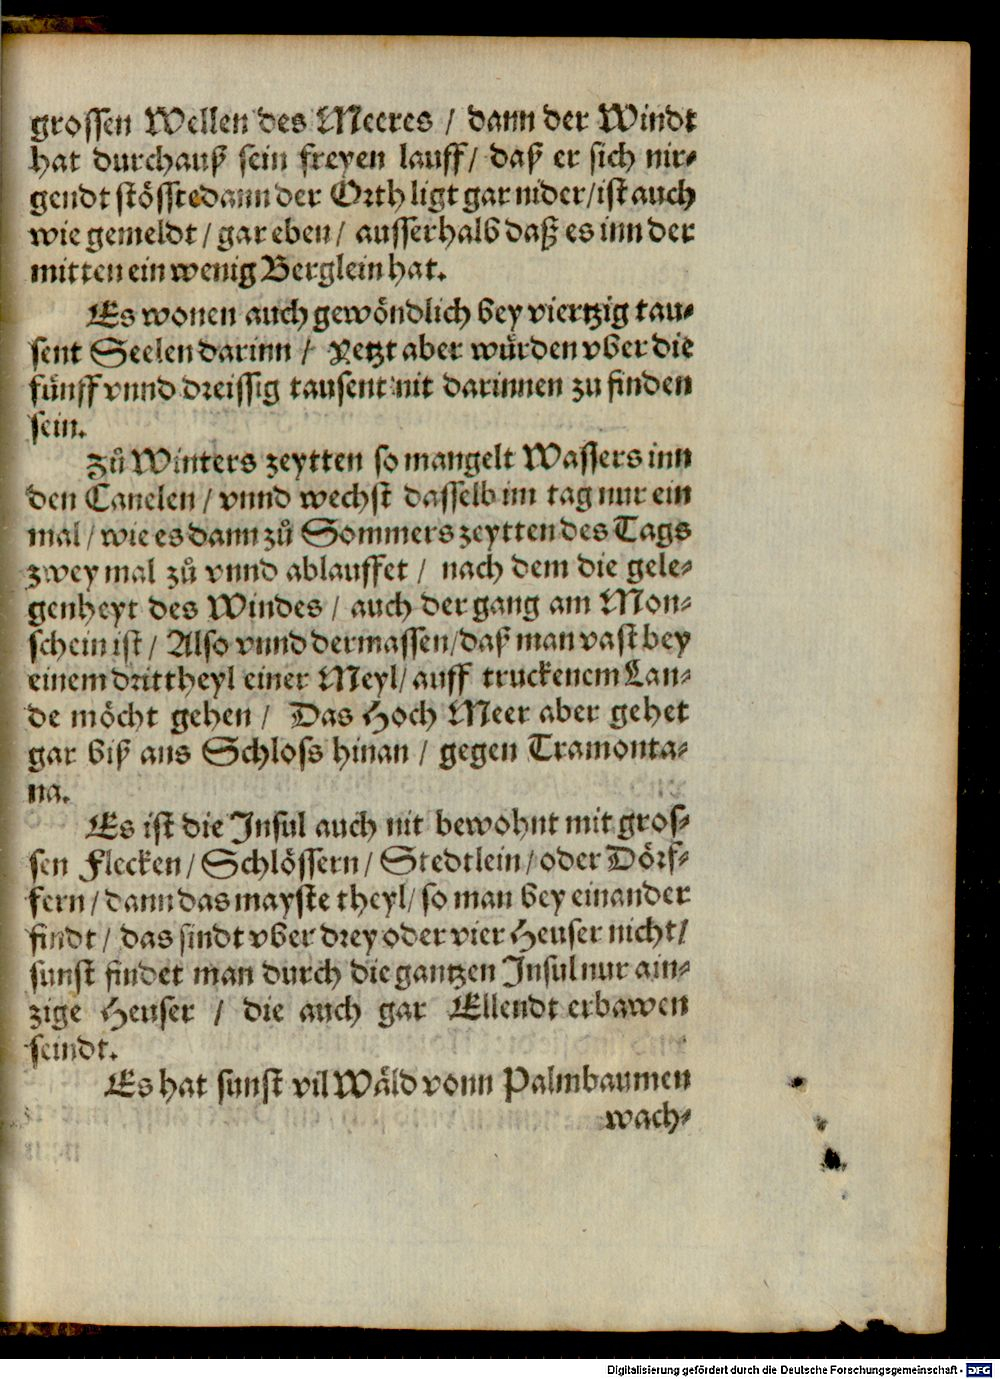 grossen Wellen des Meeres / dann der Windt
hat durchauß sein freyen lauff / daß er sich nir⸗
gendt stösste dann der Orth ligt gar nider / ist auch
wie gemeldt / gar eben / ausserhalb daß es inn der
mitten ein wenig Berglein hat.
Es wonen auch gewöndlich bey viertzig tau⸗
sent Seelen darinn / Yetzt aber wuͤrden vber die
fuͤnff vnnd dreissig tausent nit darinnen zu finden
sein.
Zuͦ Winters zeytten so mangelt Wassers inn
den Canelen / vnnd wechst dasselb im tag nur ein
mal / wie es dann zuͦ Sommers zeytten des Tags
zwey mal zuͦ vnnd ablauffet / nach dem die gele⸗
genheyt des Windes / auch der gang am Mon⸗
schein ist / Also vnnd dermassen / daß man vast bey
einem drittheyl einer Meyl / auff truckenem Lan⸗
de möcht gehen / Das Hoch Meer aber gehet
gar biß ans Schloss hinan / gegen Tramonta⸗
na.
Es ist die Insul auch nit bewohnt mit gros⸗
sen Flecken / Schlössern / Stedtlein / oder Dörf⸗
fern / dann das mayste theyl / so man bey einander
findt / das sindt vber drey oder vier Heuser nicht /
sunst findet man durch die gantzen Insul nur ain⸗
zige Heuser / die auch gar Ellendt erbawen
seindt.
Es hat sunst vil Wäld vonn Palmbaumen
wach⸗
Digitalisierung gefördert durch die Deutsche Forschungsgemeinschaft - DFG